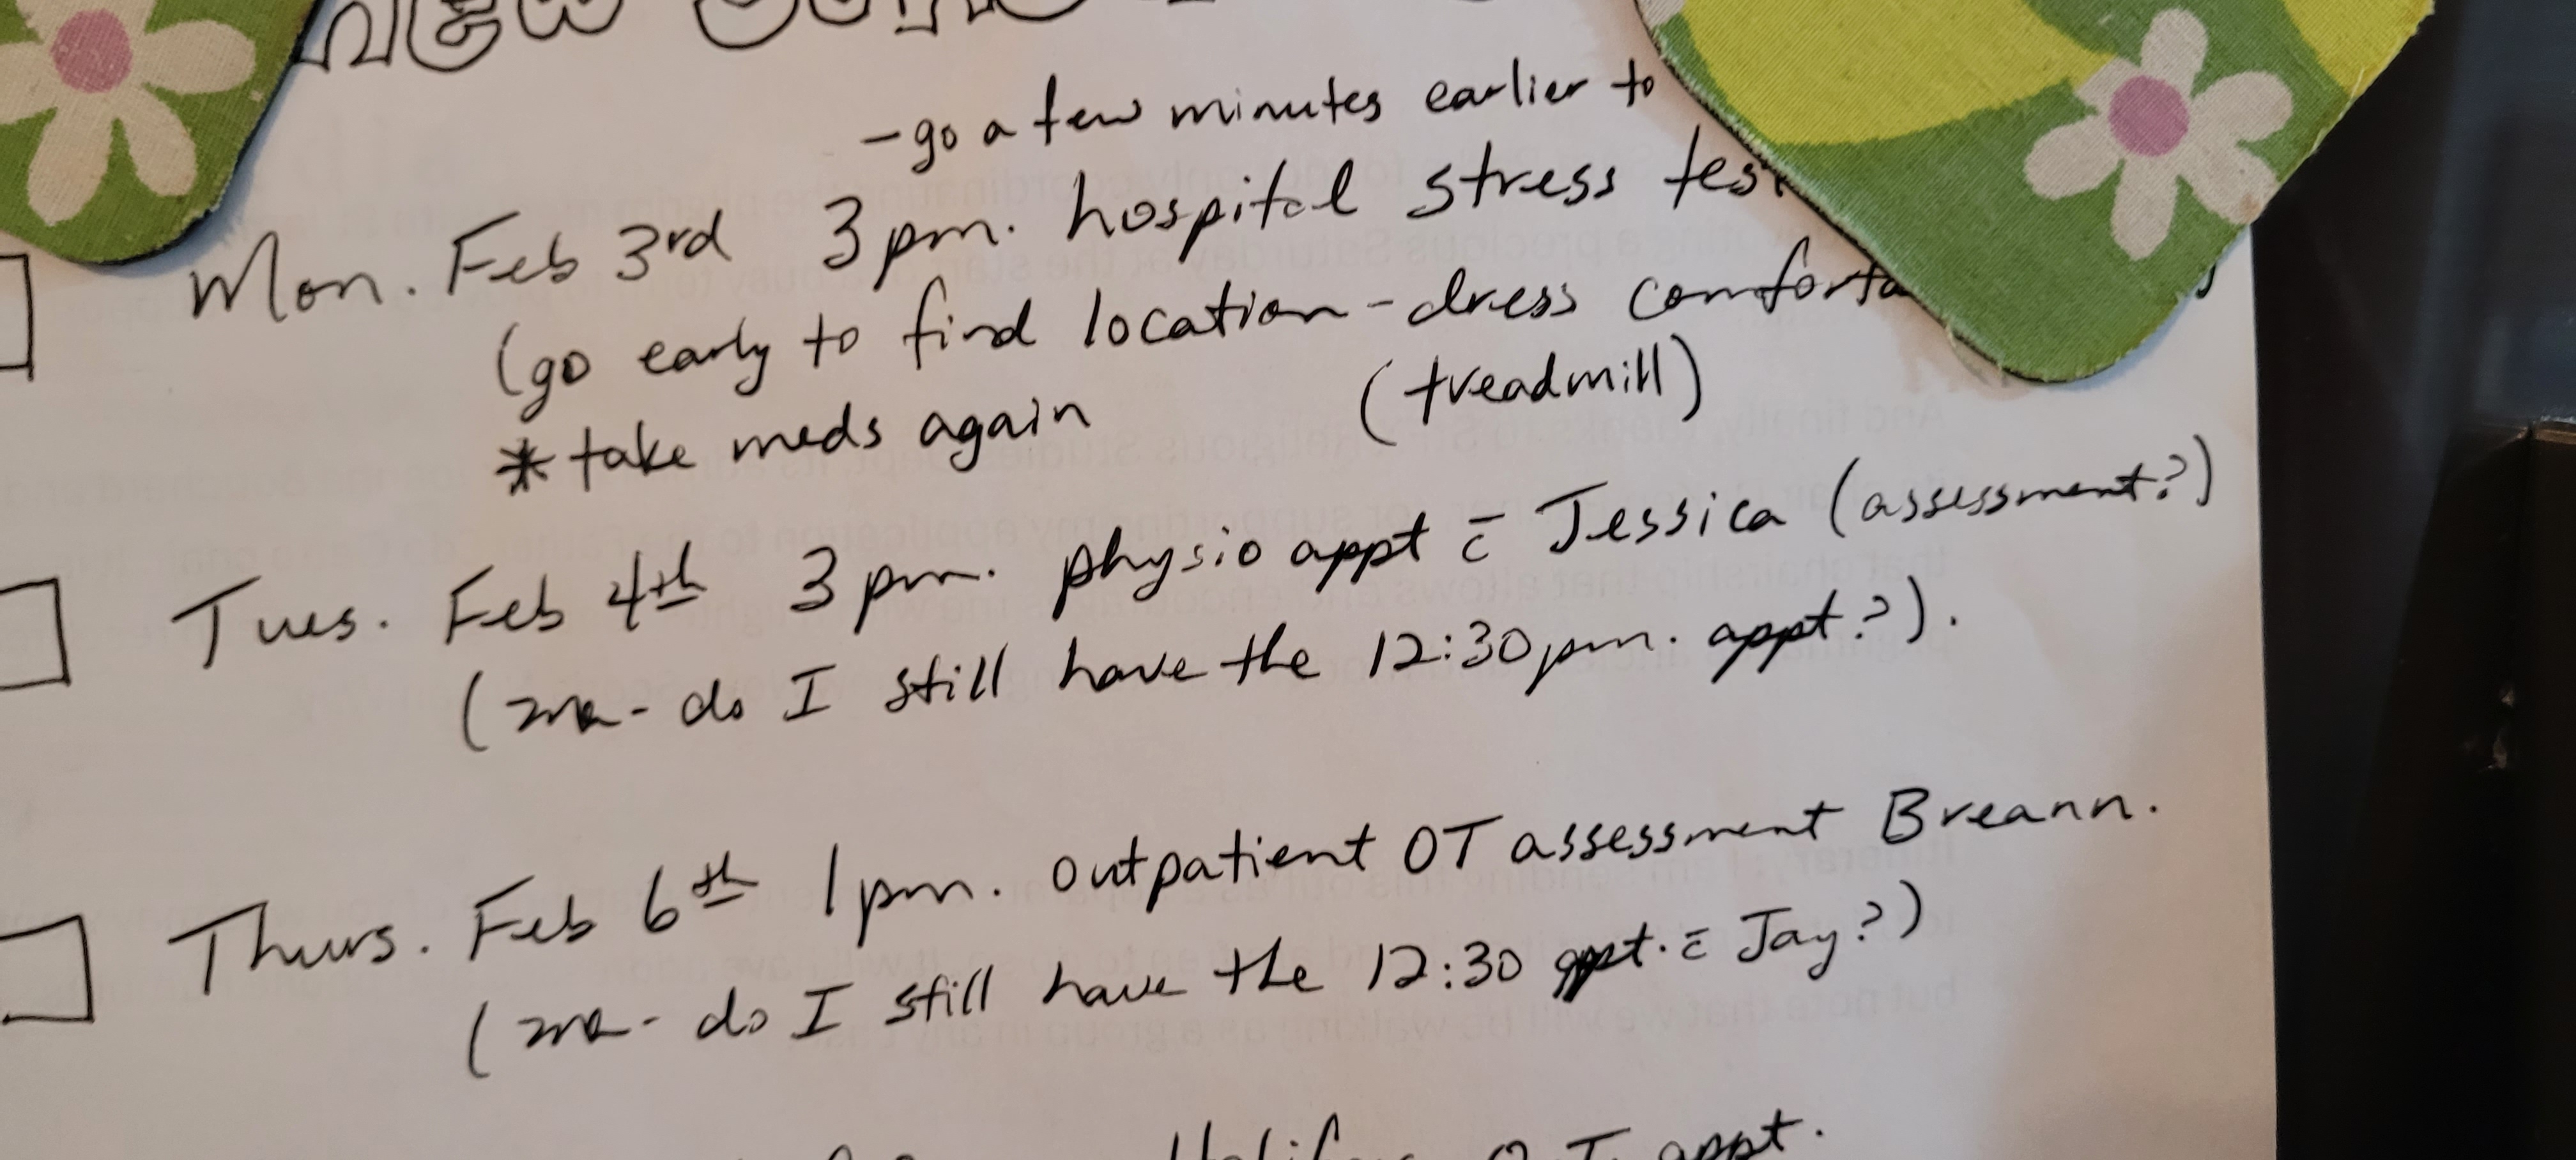 -go a few minutes earlier to
Mon. Feb 3rd 3pm. hospital stress test
(go early to find location - dress comforta
(treadmill)
* take meds again
Tues. Feb 4th 3pm. physio appt c̄ Jessica (assessment?)
(me - do I still have the 12:30pm. appt.?).
Thurs. Feb 6th 1pm. outpatient OT assessment Breann.
(me - do I still have the 12:30 appt. c̄ Jay?)
appt.